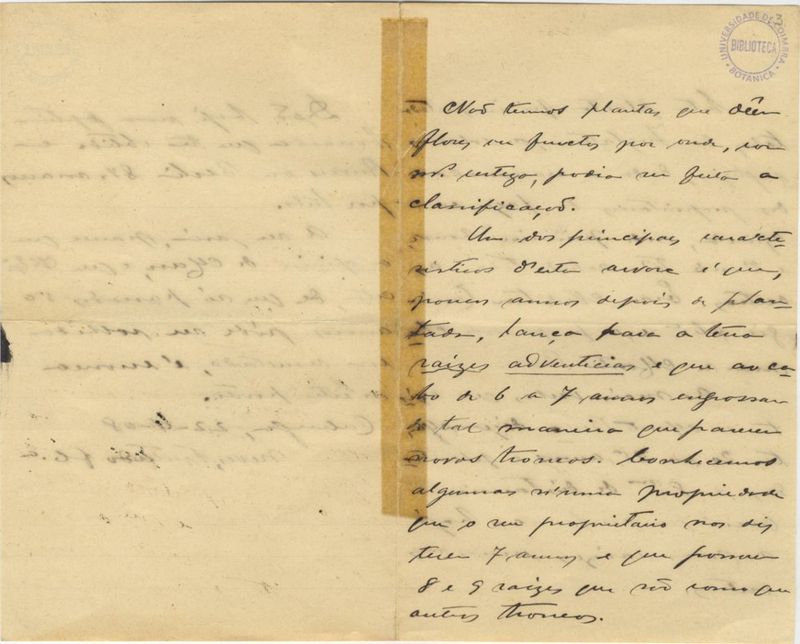 3
UNIVERSIDADE DE COIMBRA
BIBLIOTECA
BOTANICA
Não temos plantas que dêem
flores ou fructos por onde, com
m.ta certeza, podia ser feita a
classificação.
Um dos principaes caracte-
risticos d'esta arvore é que,
poucos annos depois de plan-
tada, lança para a terra
raizes adventicias e que ao ca-
bo de 6 a 7 annos engrossam
de tal maneira que parecem
novos troncos. Conhecemos
algumas n'uma propriedade
que o seu proprietario nos diz
terem 7 annos e que possuem
8 e 9 raizes que são como que
outros troncos.